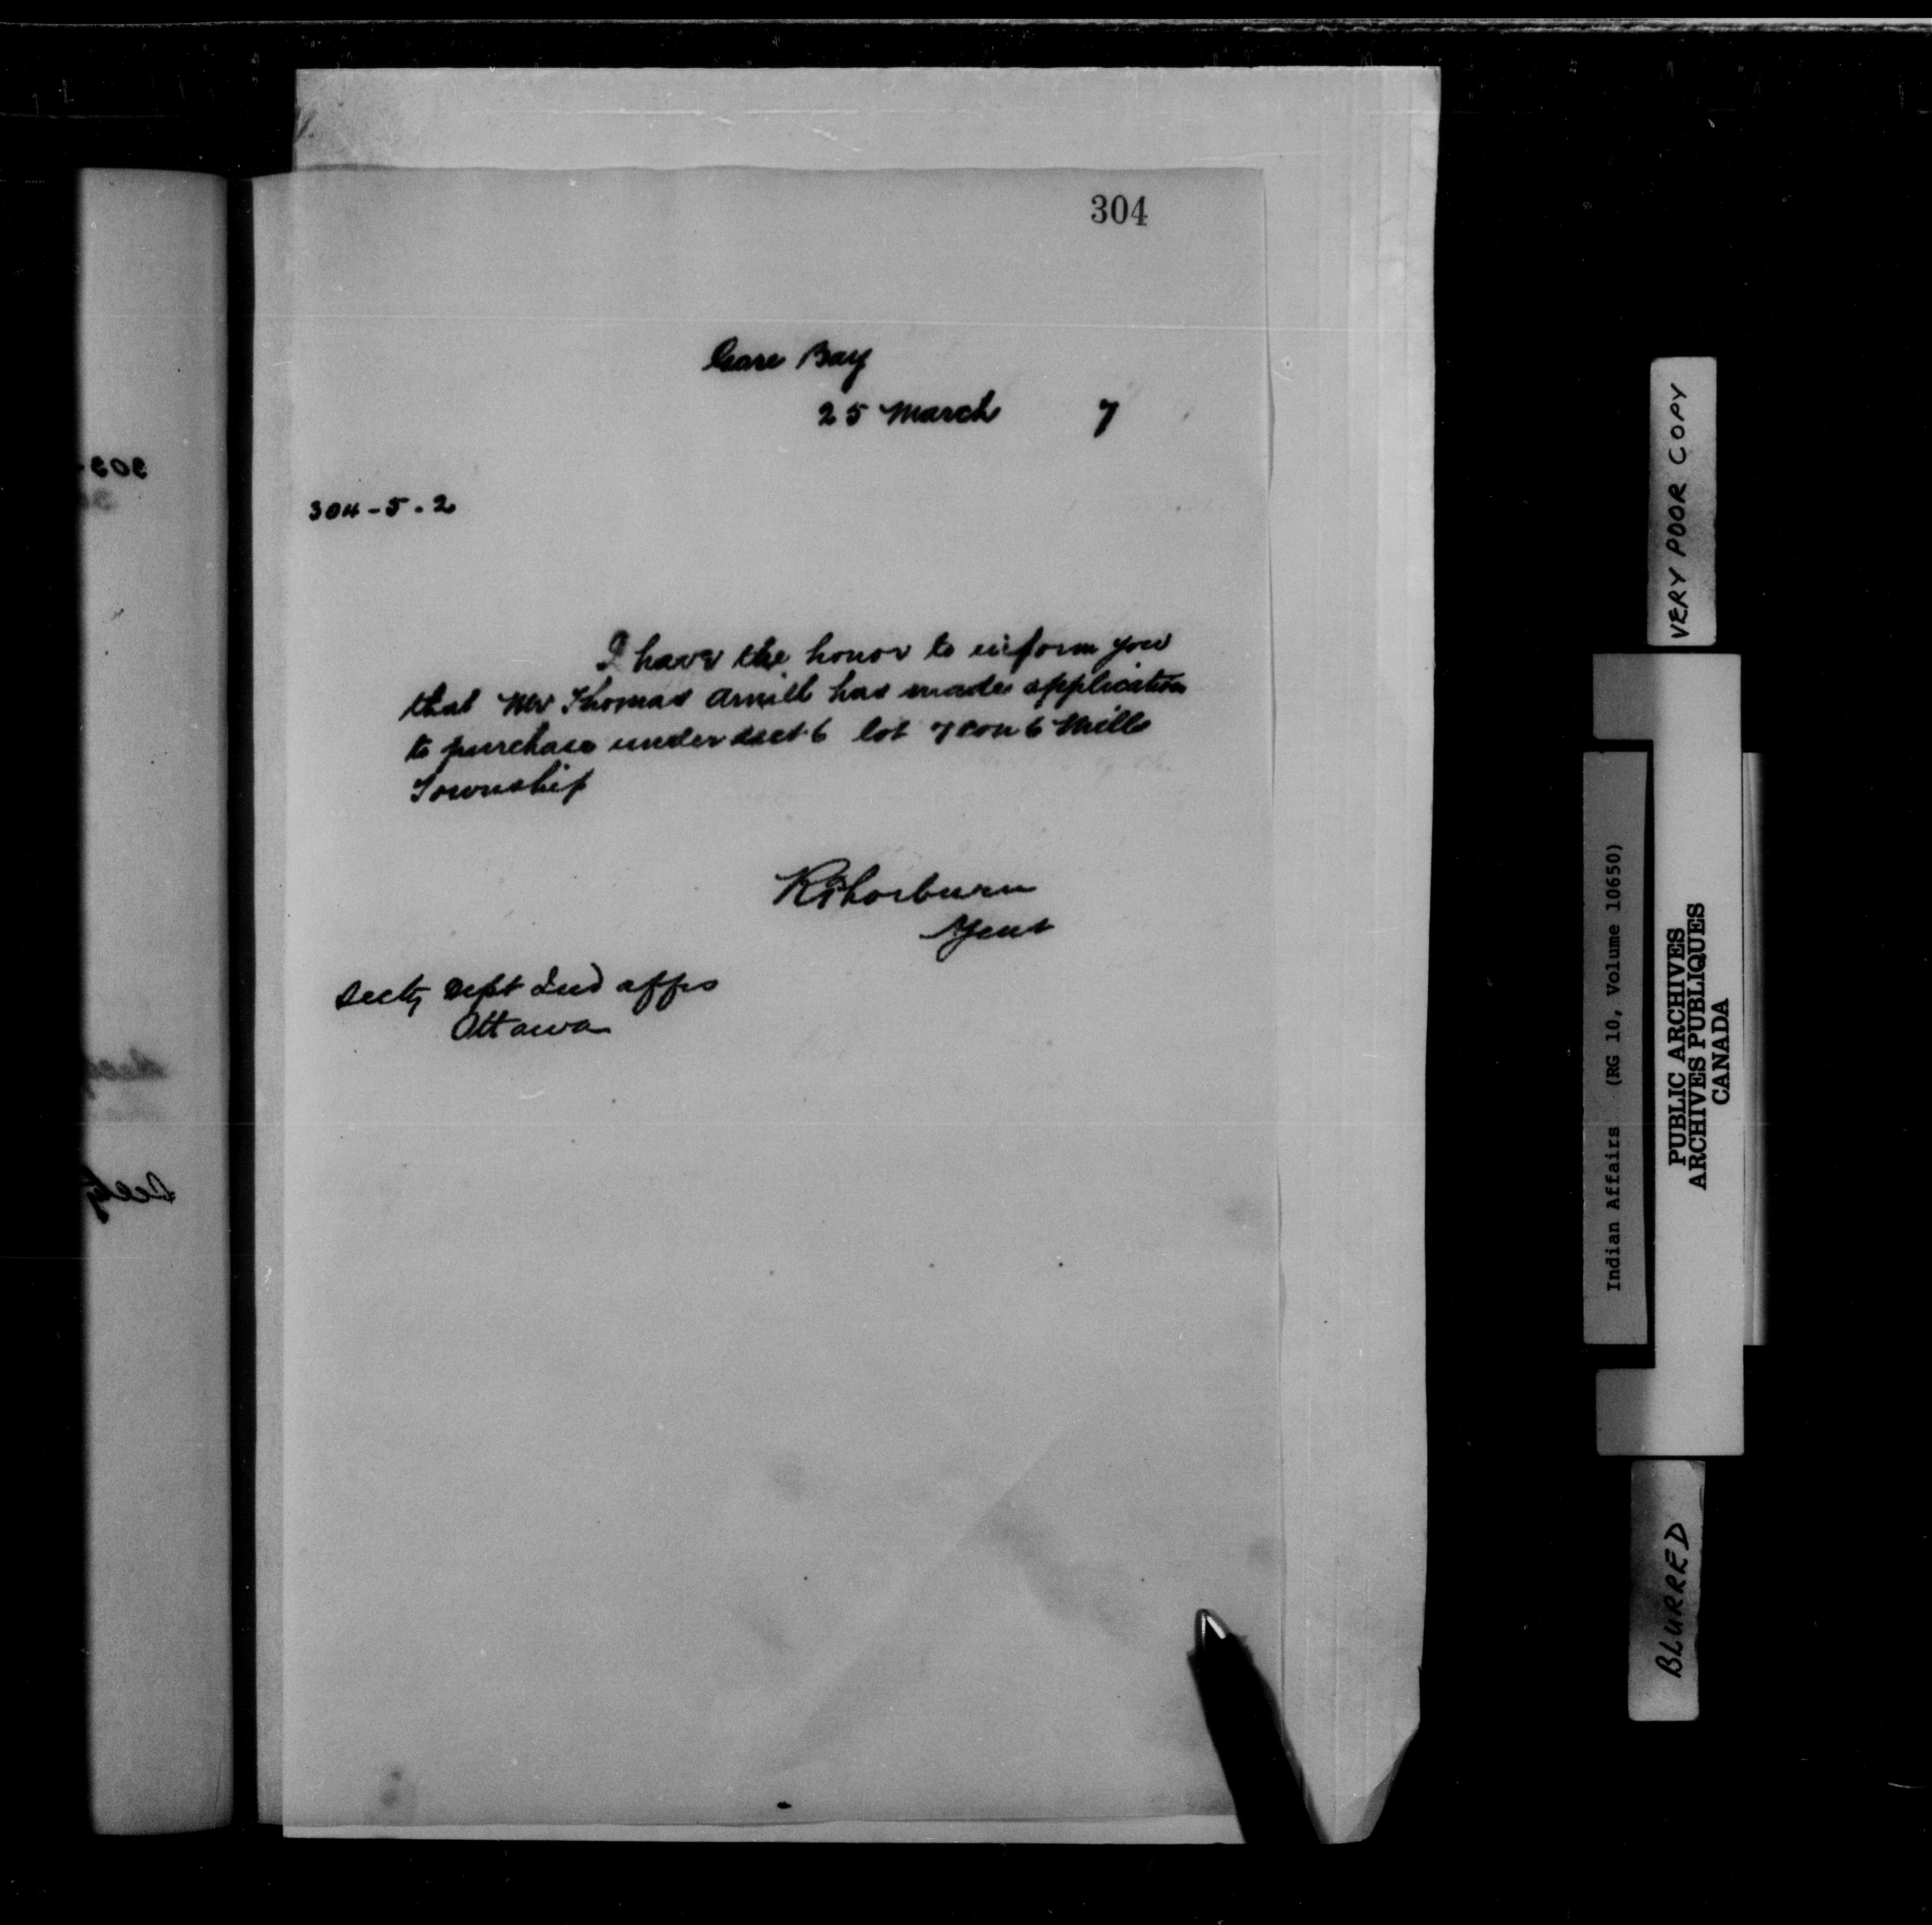 304
Gore Bay
25 March 7
304-5.2
I have the honor to inform you
that Mr Thomas Arnill has made application
to purchase under sect 6 lot 7 con 6 Mills
Township
R Thorburn
Agent
Secty Dept Ind affrs
Ottawa
VERY POOR COPY
Indian Affairs (RG 10, Volume 10650)
PUBLIC ARCHIVES
ARCHIVES PUBLIQUES
CANADA
BLURRED